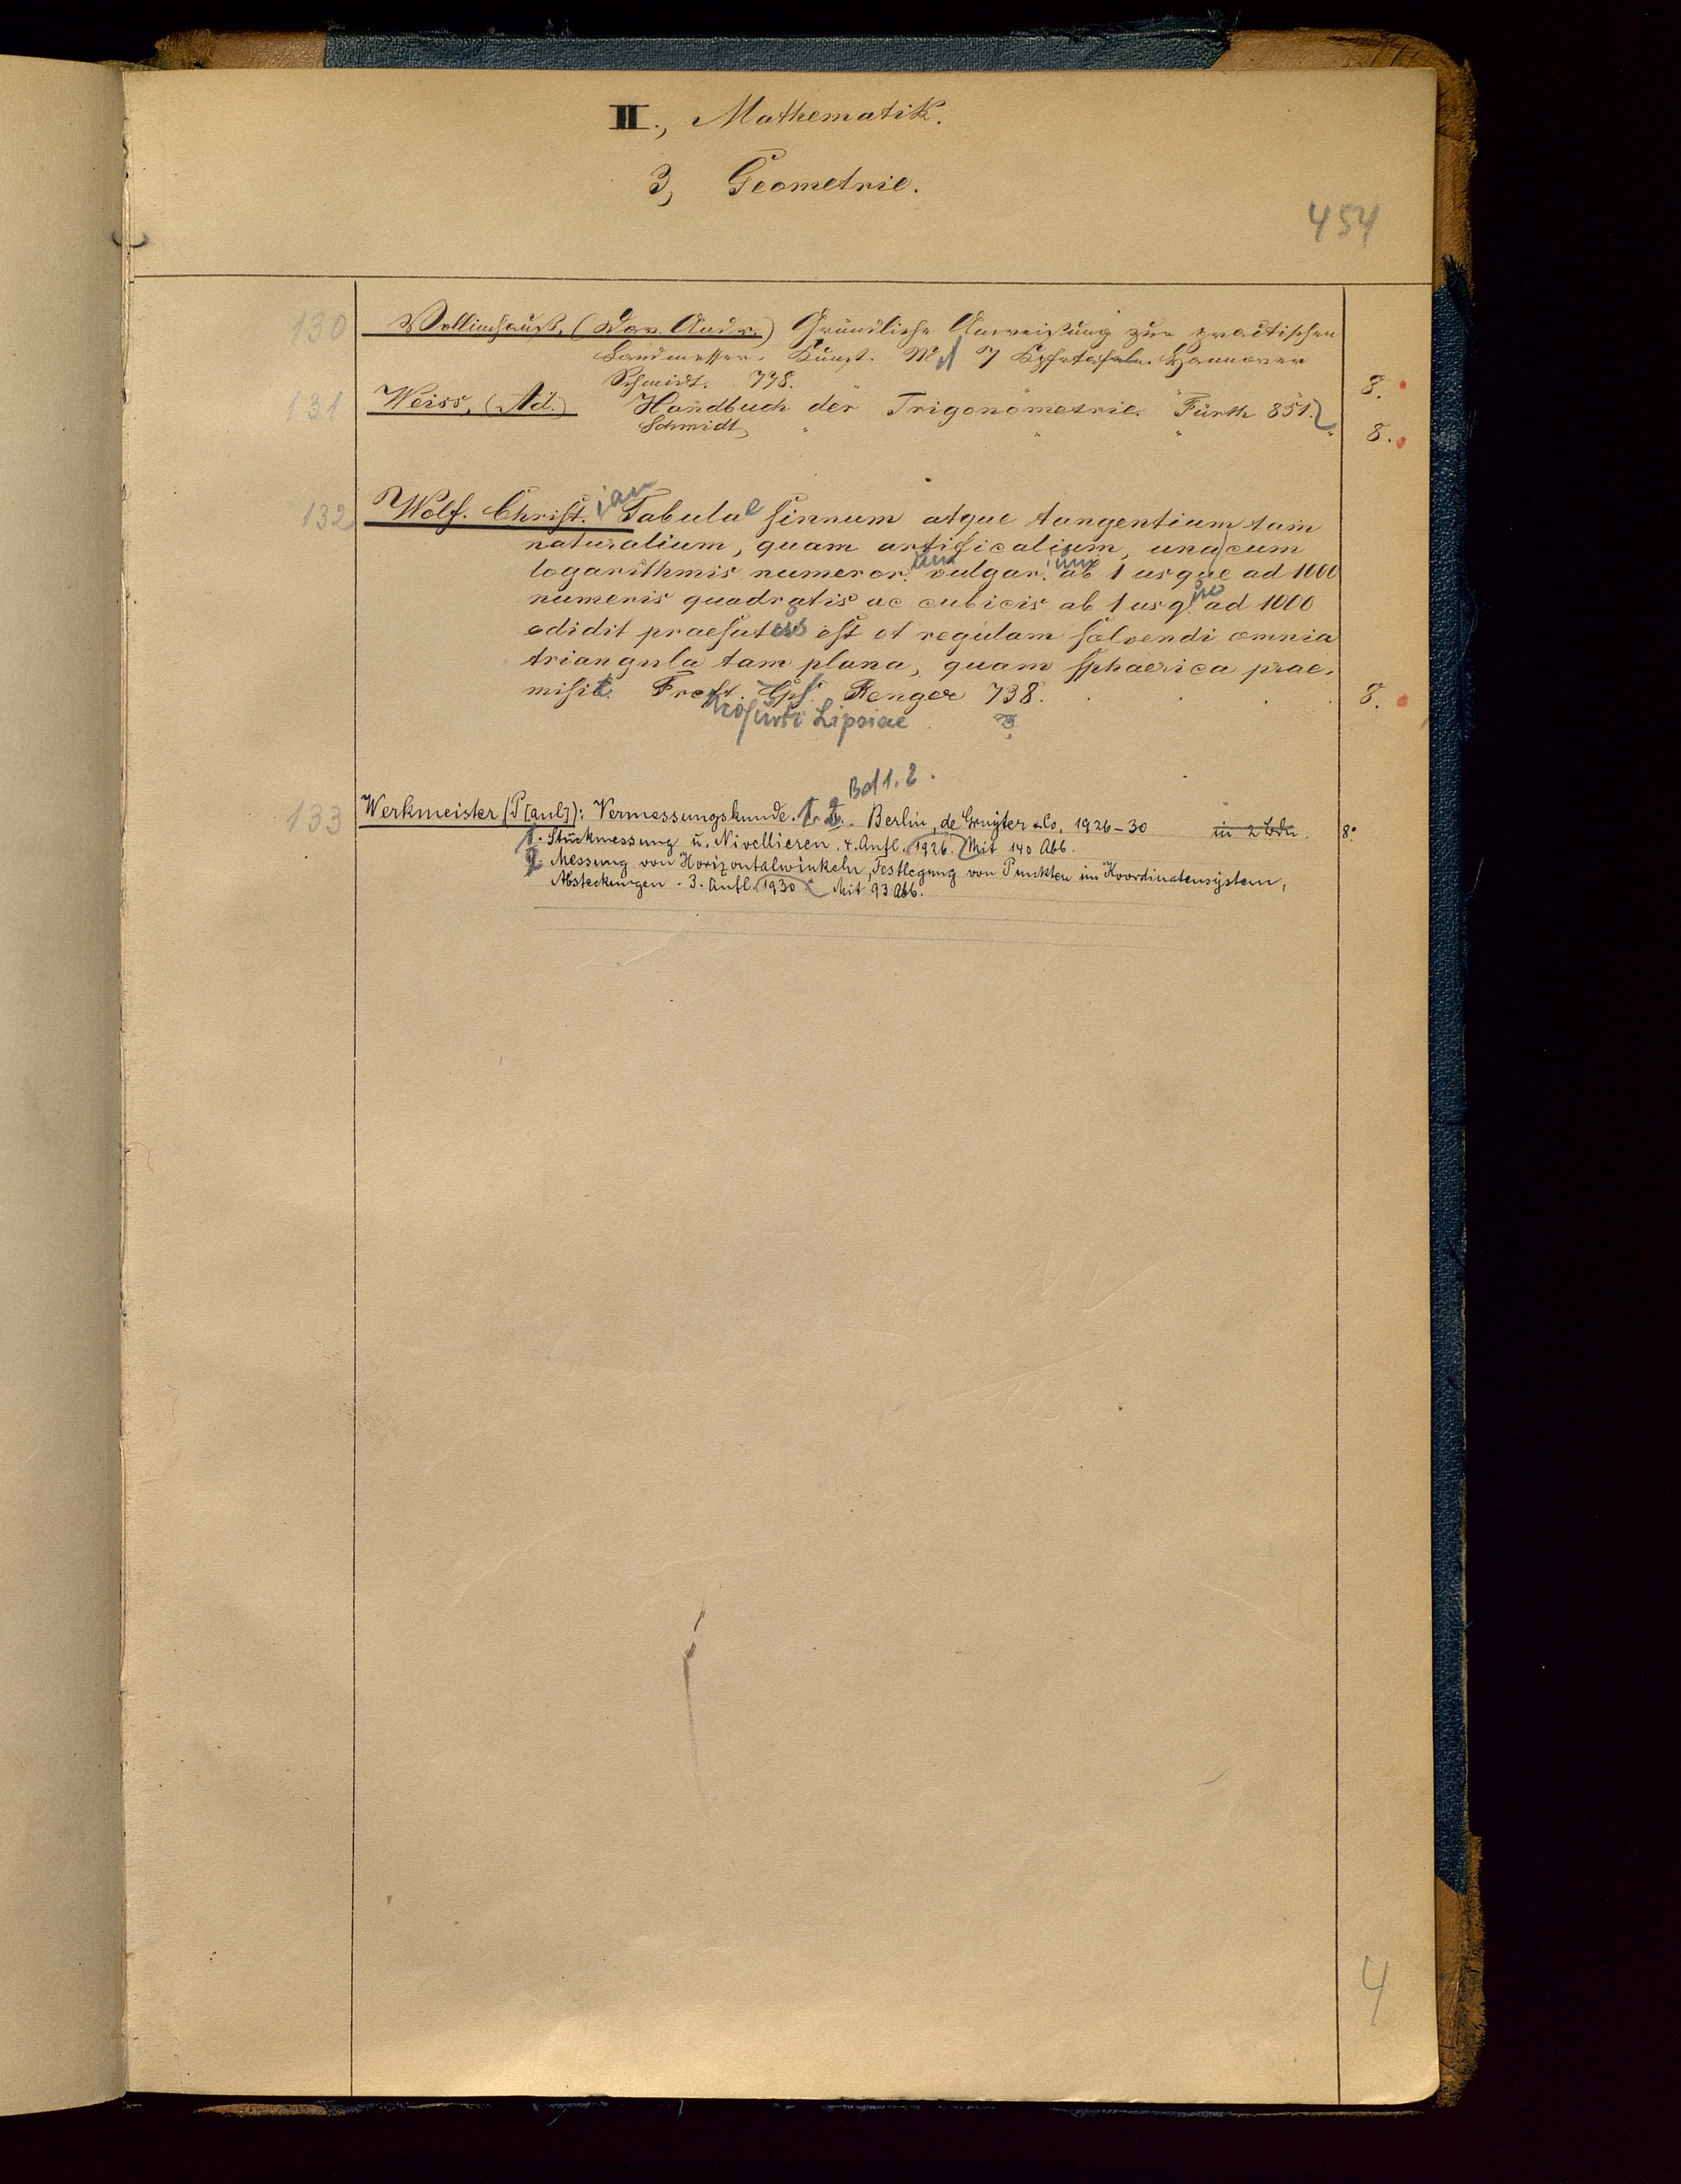 II., Mathematik.
3, Geometrie.
454
130 Vollimhaus, (Dav. Andr.) Gründliche Anweisung zur practischen
Landmesser-Kunst. M. 7 Kpfrtafeln. Hannover
Schmidt. 798. 8.
131 Weiss, (Ad.) Handbuch der Trigonometrie. Fürth 851.
Schmidt, 8.
132 Wolf. Christ.ian Tabulae sinuum atque tangentium tam
naturalium, quam artificalium, una cum
logarithmis numeror.um vulgar.ium ab 1 usque ad 1000
numeris quadratis ac cubicis ab 1 usq.ue ad 1000
edidit praefatus est et regulam solvendi omnia
triangula tam plana, quam sphaerica prae-
misit. Frcft. Lps. Renger 738. 8.
Lipsiae
Bd 1. 2.
133 Werkmeister (P[aul]): Vermessungskunde. 1. 2. Berlin, de Gruyter & Co, 1926-30 in 2 Bdn. 8°
1. Stückmessung u. Nivellieren. 4. Aufl. 1926. Mit 140 Abb.
2. Messung von Horizontalwinkeln, Festlegung von Punkten im Koordinatensystem,
Absteckungen. 3. Aufl. 1930. Mit 93 Abb.
4